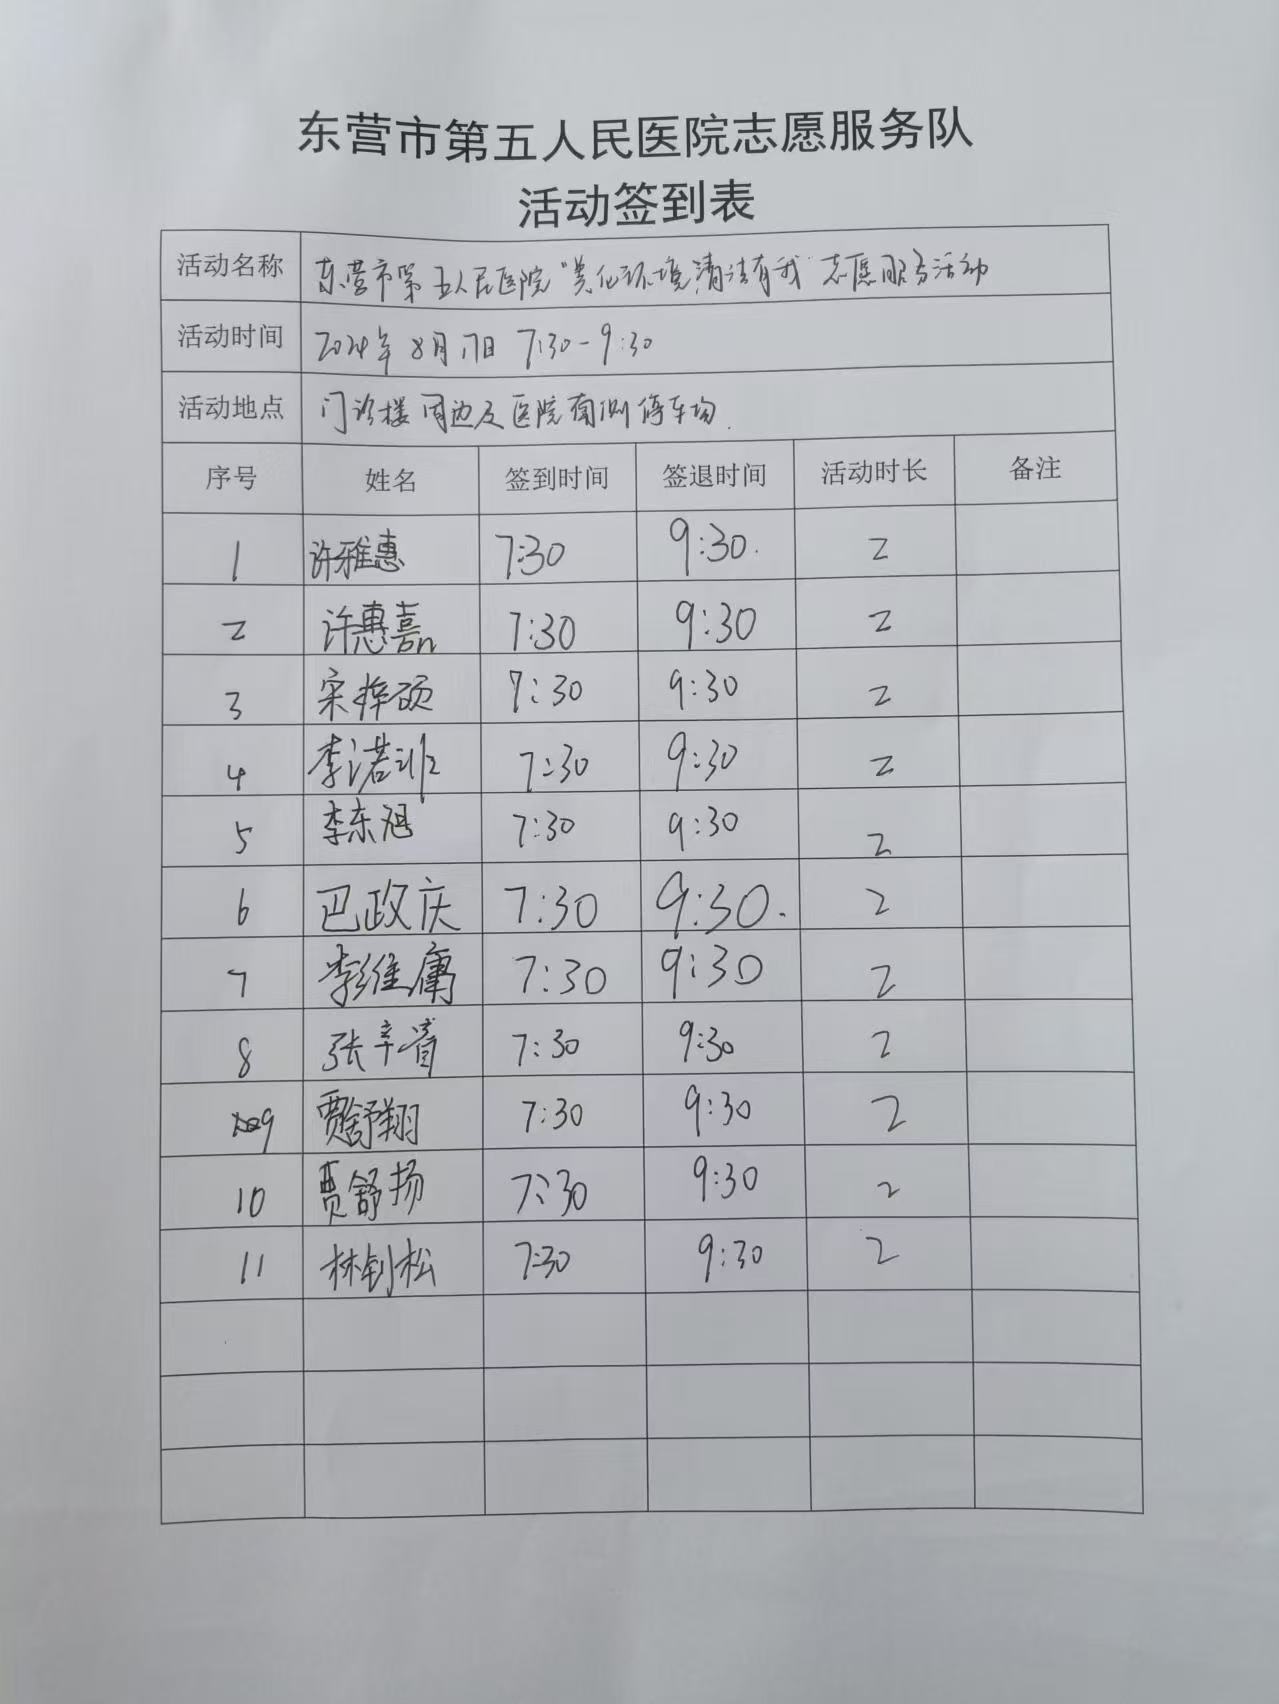 东营市第五人民医院志愿服务队
活动签到表
活动名称 东营市第五人民医院“美化环境清洁有我”志愿服务活动
活动时间 2024年8月17日 7:30-9:30
活动地点 门诊楼周边及医院南侧停车场.
序号 姓名 签到时间 签退时间 活动时长 备注
1 许雅惠 7:30 9:30. 2
2 许惠嘉 7:30 9:30 2
3 宋梓硕 7:30 9:30 2
4 李诺 7:30 9:30 2
5 李东旭 7:30 9:30 2
6 巴政庆 7:30 9:30. 2
7 彭维庸 7:30 9:30 2
8 张 7:30 9:30 2
9 贾舒翔 7:30 9:30 2
10 贾舒扬 7:30 9:30 2
11 林钊松 7:30 9:30 2